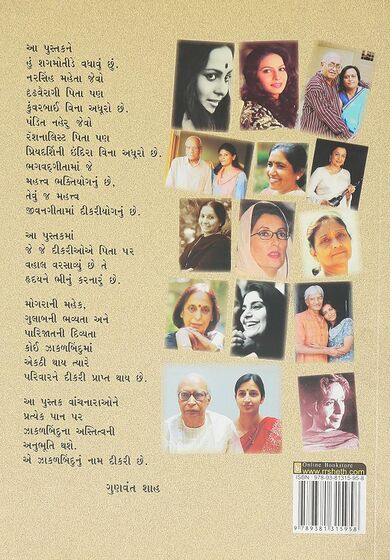 આ પુસ્તકને
હું શગમોતીડે વધાવું છું.
નરસિંહ મહેતા જેવો
દૃઢવેરાગી પિતા પણ
કુંવરબાઈ વિના અધૂરો છે.
પંડિત નહેરૂ જેવો
રેશનાલિસ્ટ પિતા પણ
પ્રિયદર્શિની ઇંદિરા વિના અધૂરો છે.
ભગવદ્ગીતામાં જે
મહત્ત્વ ભક્તિયોગનું છે,
તેવું જ મહત્ત્વ
જીવનગીતામાં દીકરીયોગનું છે.
આ પુસ્તકમાં
જે જે દીકરીઓએ પિતા પર
વહાલ વરસાવ્યું છે તે
હૃદયને ભીનું કરનારું છે.
મોગરાની મહેક,
ગુલાબની ભવ્યતા અને
પારિજાતની દિવ્યતા
કોઈ ઝાકળબિંદુમાં
એકઠી થાય ત્યારે
પરિવારને દીકરી પ્રાપ્ત થાય છે.
આ પુસ્તક વાંચનારાઓને
પ્રત્યેક પાન પર
ઝાકળબિંદુના અસ્તિત્વની
અનુભૂતિ થશે.
એ ઝાકળબિંદુનું નામ દીકરી છે.
ગુણવંત શાહ
Online Bookstore
www.rrsheth.com
ISBN 978-93-81315-95-8
9 789381 315958